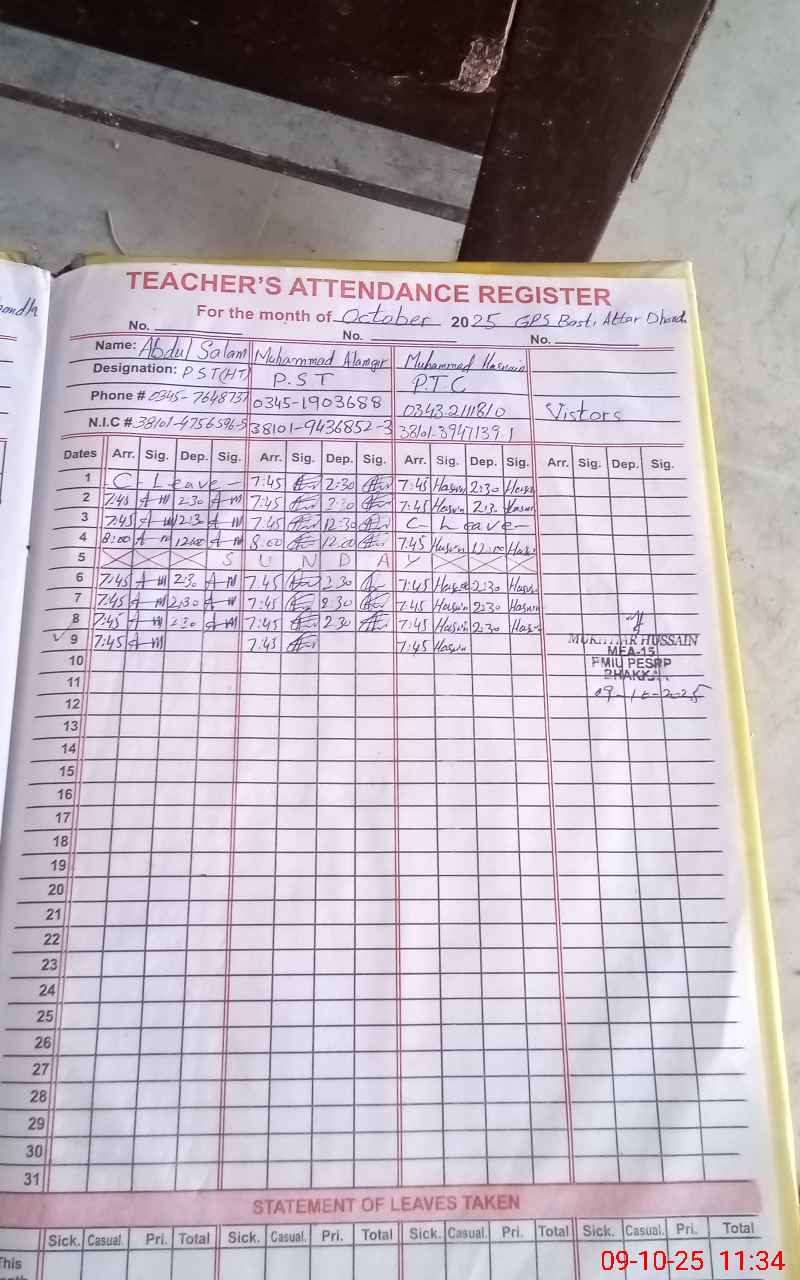 TEACHER'S ATTENDANCE REGISTER
For the month of October 2025 GPS Basti Attar Dhandh
No. No. No.
Name: Abdul Salam Muhammad Alamgir Muhammad Hasnain
Designation: P S T (HT) P.S T P.T.C
Phone # 0345-7648731 0345-1903688 0343.2111810 Vistors
N.I.C # 38101-4756596-5 38101-9436852-3 38101-3947139-1
Dates Arr. Sig. Dep. Sig. Arr. Sig. Dep. Sig. Arr. Sig. Dep. Sig. Arr. Sig. Dep. Sig.
1 C- Leave - 7:45 2:30 7:45 Hasnin 2:30 Hasnin
2 7:45 A m 2:30 A m 7:45 2:30 7:45 Hasnin 2:30 Hasnin
3 7:45 A m 12:30 A m 7:45 12:30 C- Leave -
4 8:00 A m 12:00 A m 8:00 12:00 7:45 Hasnin 12:00 Hasnin
5 S U N D A Y
6 7:45 A m 2:30 A m 7:45 2:30 7:45 Hasnin 2:30 Hasnin
7 7:45 A m 2:30 A m 7:45 2:30 7:45 Hasnin 2:30 Hasnin
8 7:45 A m 2:30 A m 7:45 2:30 7:45 Hasnin 2:30 Hasnin
9 7:45 A m 7:45 7:45 Hasnin
MUKHTIAR HUSSAIN
MEA-15
PMIU PESRP
BHAKKAR
09-10-2025
10
11
12
13
14
15
16
17
18
19
20
21
22
23
24
25
26
27
28
29
30
31
STATEMENT OF LEAVES TAKEN
Sick. Casual. Pri. Total Sick. Casual. Pri. Total Sick. Casual. Pri. Total Sick. Casual. Pri. Total
This
09-10-25 11:34